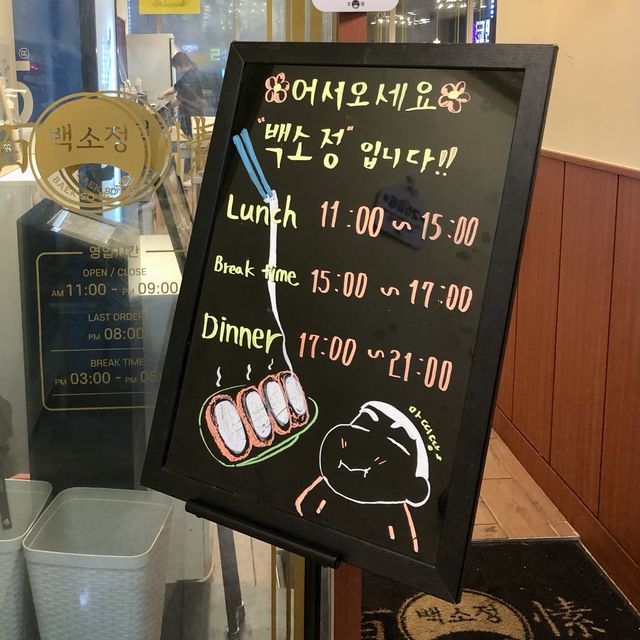 어서오세요
"백소정" 입니다!!
Lunch 11:00 ~ 15:00
Break time 15:00 ~ 17:00
Dinner 17:00 ~ 21:00
마싸떵~
백소정
영업시간
OPEN / CLOSE
AM 11:00 - PM 09:00
LAST ORDER
PM 08:00
BREAK TIME
PM 03:00 - PM 05
백소정